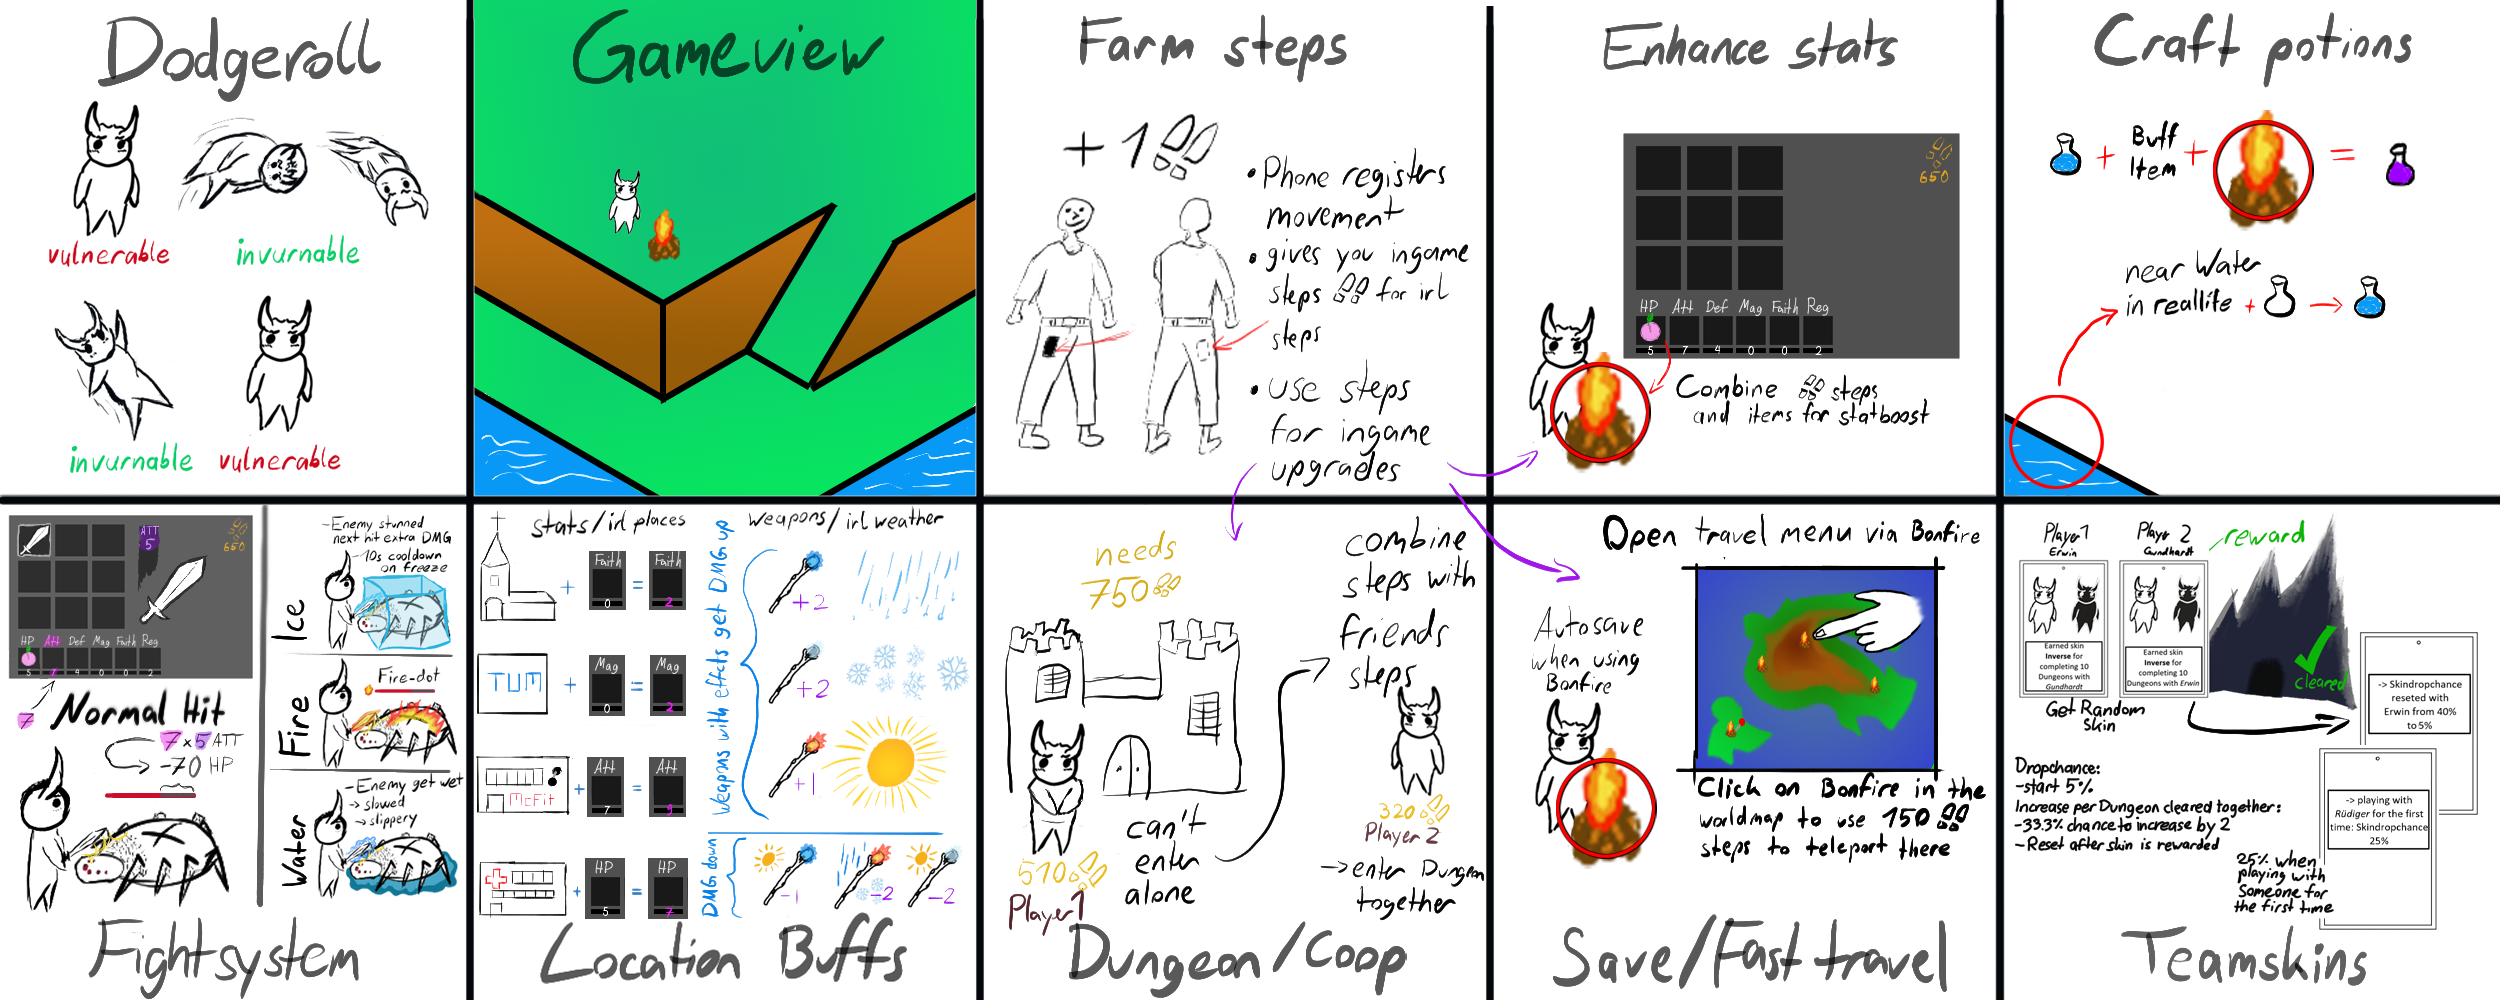 Dodgeroll
vulnerable
invurnable
invurnable
vulnerable
Gameview
Farm steps
+ 1
• Phone registers
movement
• gives you ingame
steps for irl
steps
• use steps
for ingame
upgrades
Enhance stats
650
HP Att Def Mag Faith Reg
5 7 4 0 0 2
Combine steps
and items for statboost
Craft potions
+ Buff
Item + =
near Water
in reallife + →
ATT
5
650
HP Att Def Mag Faith Reg
5 7 4 0 0 2
7
Normal Hit
7 x 5 ATT
-70 HP
Ice
-Enemy stunned
next hit extra DMG
-10s cooldown
on freeze
Fire
Fire-dot
Water
-Enemy get wet
→ slowed
→ slippery
Fightsystem
stats/irl places
+ Faith 0 = Faith 2
TUM + Mag 0 = Mag 2
McFit + Att 7 = Att 9
+ HP 5 = HP 7
Weapons/irl weather
Weapons with effects get DMG up
+2
+2
+1
DMG down
-1 -2 -2
Location Buffs
needs
750
can't
enter
alone
510
Player 1
combine
steps with
friends
steps
320
Player 2
→enter Dungeon
together
Dungeon/Coop
Open travel menu via Bonfire
Autosave
when using
Bonfire
Click on Bonfire in the
worldmap to use 150
steps to teleport there
Save/Fast travel
Player 1
Erwin
Player 2
Gundhardt
reward
Earned skin
Inverse for
completing 10
Dungeons with
Gundhardt
Earned skin
Inverse for
completing 10
Dungeons with Erwin
cleared
Get Random
Skin
-> Skindropchance
reseted with
Erwin from 40%
to 5%
Dropchance:
-start 5%
Increase per Dungeon cleared together:
-33.3% chance to increase by 2
-Reset after skin is rewarded
-> playing with
Rüdiger for the first
time: Skindropchance
25%
25% when
playing with
Someone for
the first time
Teamskins